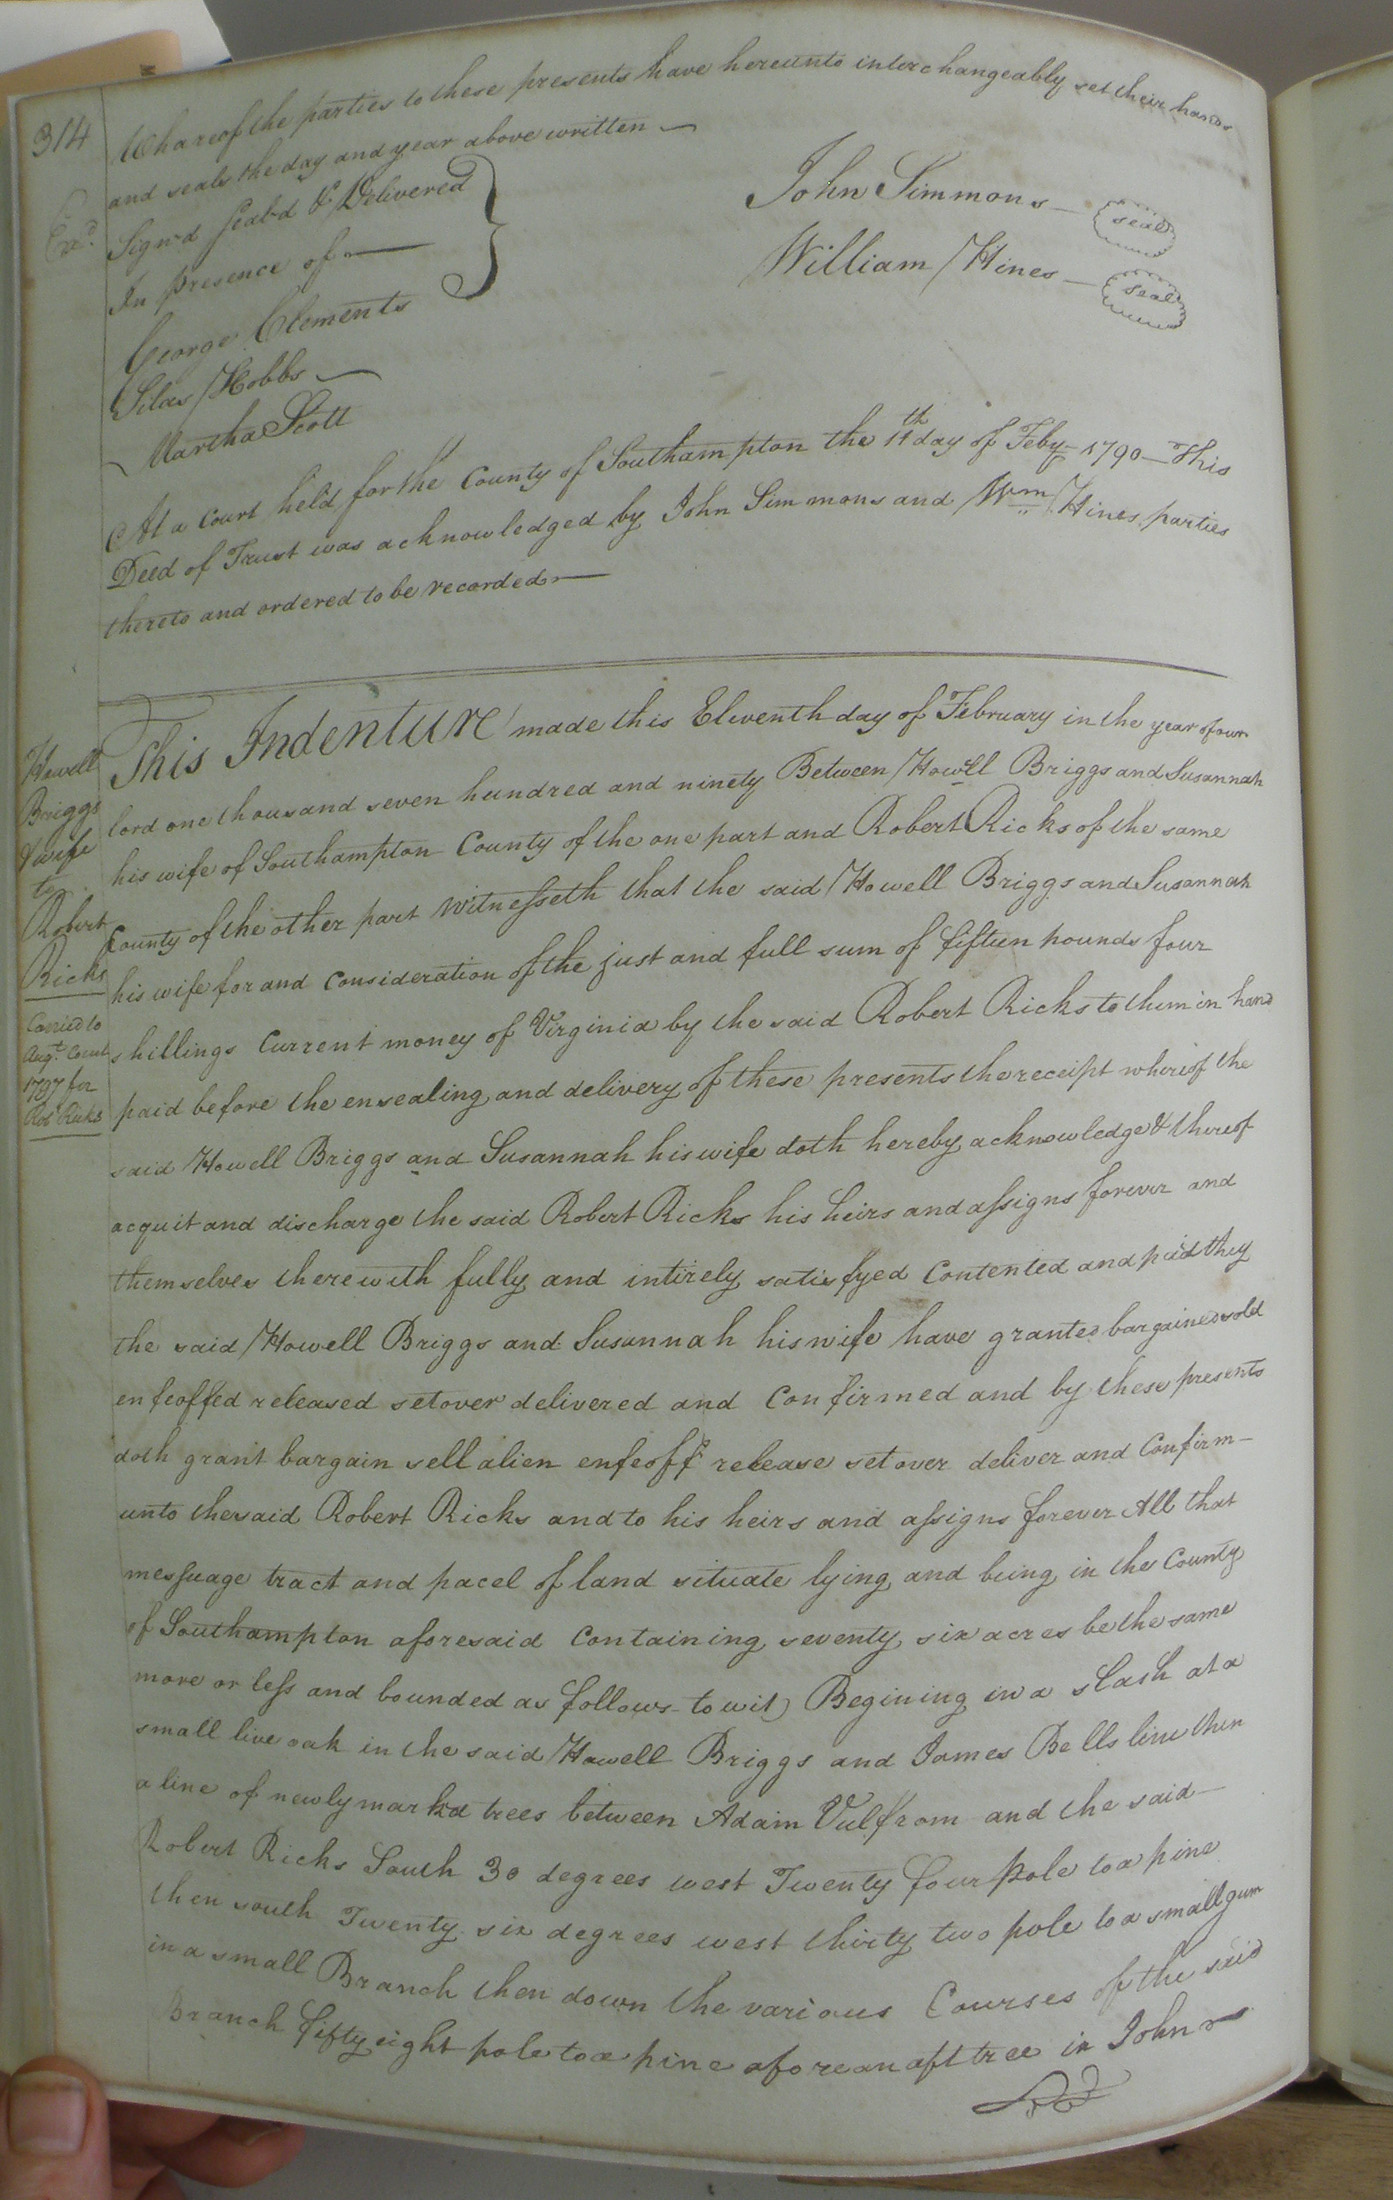 314
Whareof the parties to these presents have hereunto interchangeably set their hands
and seals the day and year above written
Exd.
Sign'd Seal'd & Delivered
In presence of
John Simmons seal
William Hines seal
George Clements
Silas Hobbs
Martha Scott
At a court held for the County of Southampton the 11th day of Feby 1790 This
Deed of Trust was acknowledged by John Simmons and Wm Hines parties
thereto and ordered to be recorded
Howell
Briggs
& wife
to
Robert
Ricks
Carried to
Augt Court
1797 for
Rob Ricks
This Indenture made this Eleventh day of February in the year of our
lord one thousand seven hundred and ninety Between Howell Briggs and Susannah
his wife of Southampton County of the one part and Robert Ricks of the same
County of the other part Witnesseth that the said Howell Briggs and Susannah
his wife for and Consideration of the just and full sum of fifteen pounds four
shillings Current money of Virginia by the said Robert Ricks to them in hand
paid before the ensealing and delivery of these presents the receipt whereof the
said Howell Briggs and Susannah his wife doth hereby acknowledge & thereof
acquit and discharge the said Robert Ricks his heirs and assigns forever and
themselves therewith fully and intirely satisfyed Contented and paid they
the said Howell Briggs and Susannah his wife have granted bargained sold
enfeoffed released setover delivered and Confirmed and by these presents
doth grant bargain sell alien enfeoff release set over deliver and Confirm
unto the said Robert Ricks and to his heirs and assigns forever All that
messuage tract and pacel of land situate lying and being in the County
of Southampton aforesaid Containing seventy six acres be the same
more or less and bounded as follows to wit) Begining in a slash at a
small live oak in the said Howell Briggs and James Bells line then
a line of newly markd trees between Adam Vulfrom and the said
Robert Ricks South 30 degrees west Twenty four pole to a pine
then south Twenty six degrees west thirty two pole to a small gum
in a small Branch then down the various Courses of the said
Branch fifty eight pole to a pine afore an aft tree in John